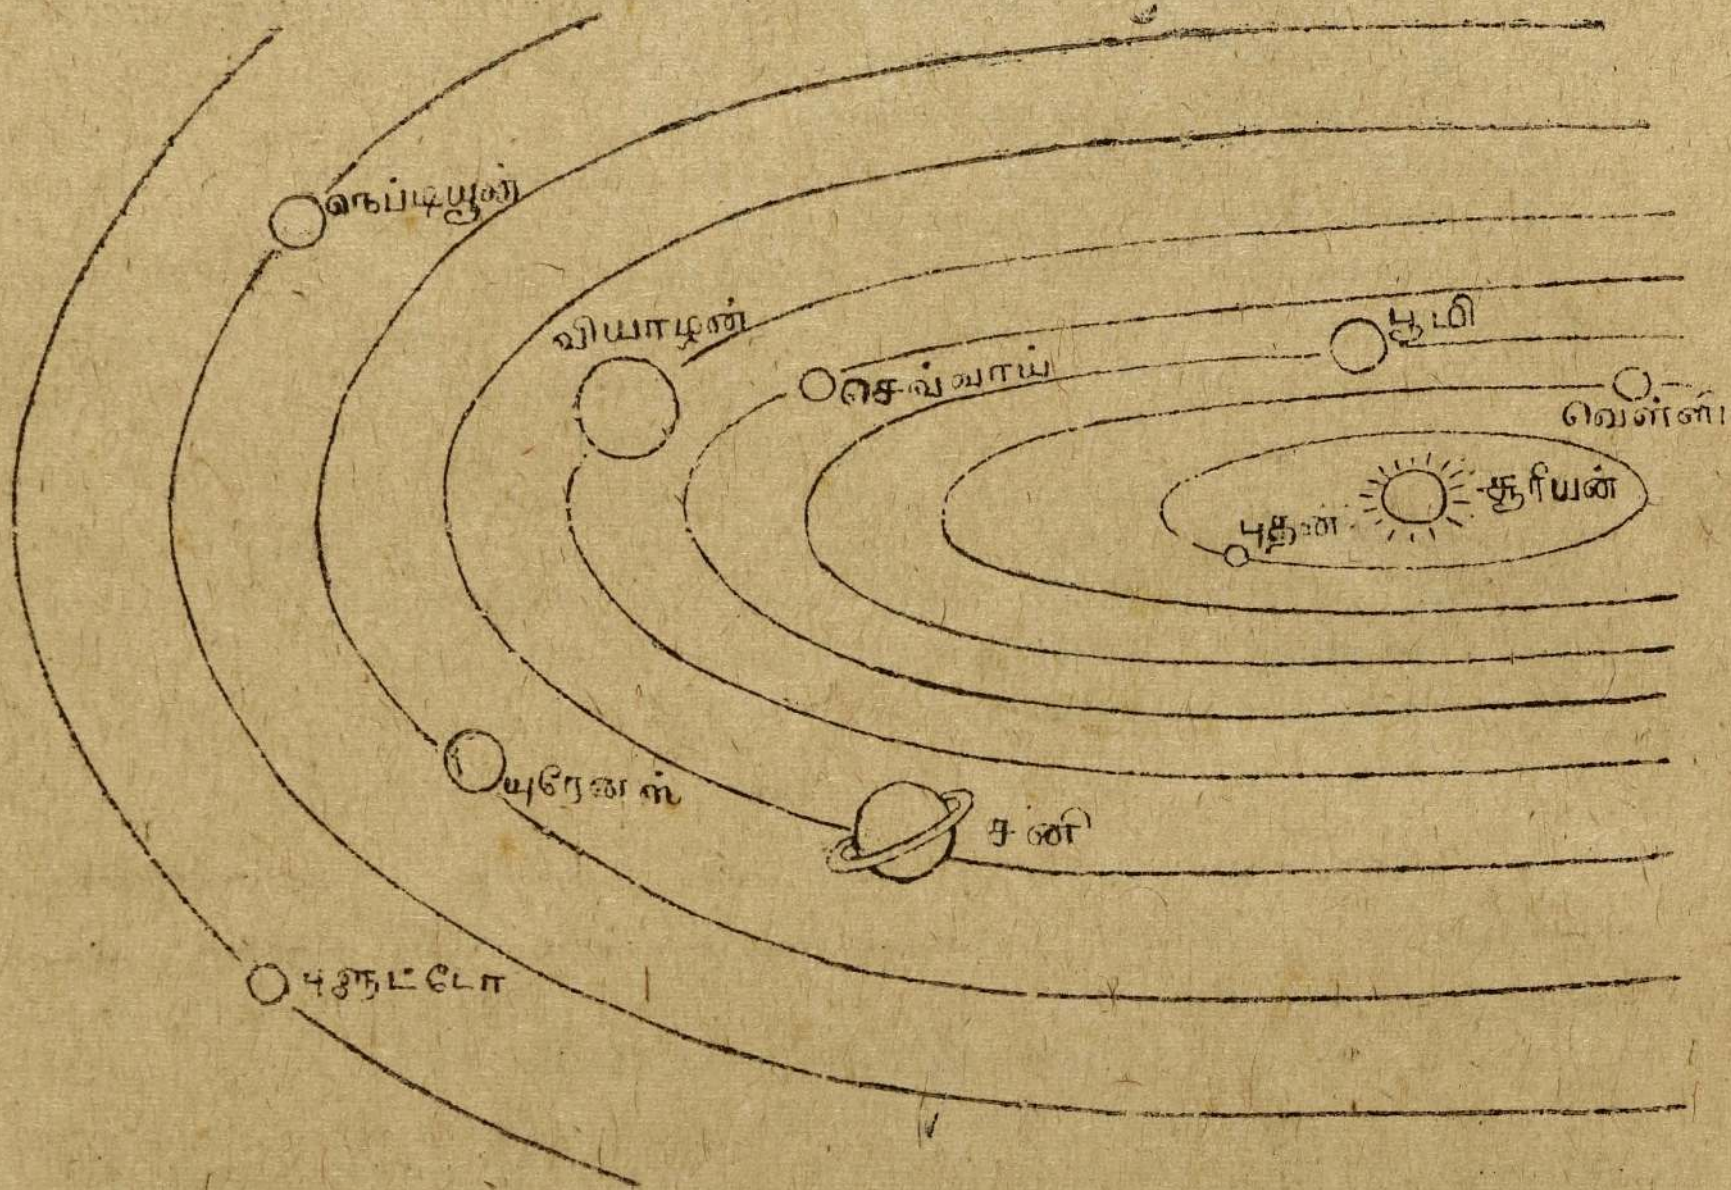 நெப்டியூன்
வியாழன்
பூமி
செவ்வாய்
வெள்ளி
சூரியன்
புதன்
யுரேனஸ்
சனி
புளூட்டோ